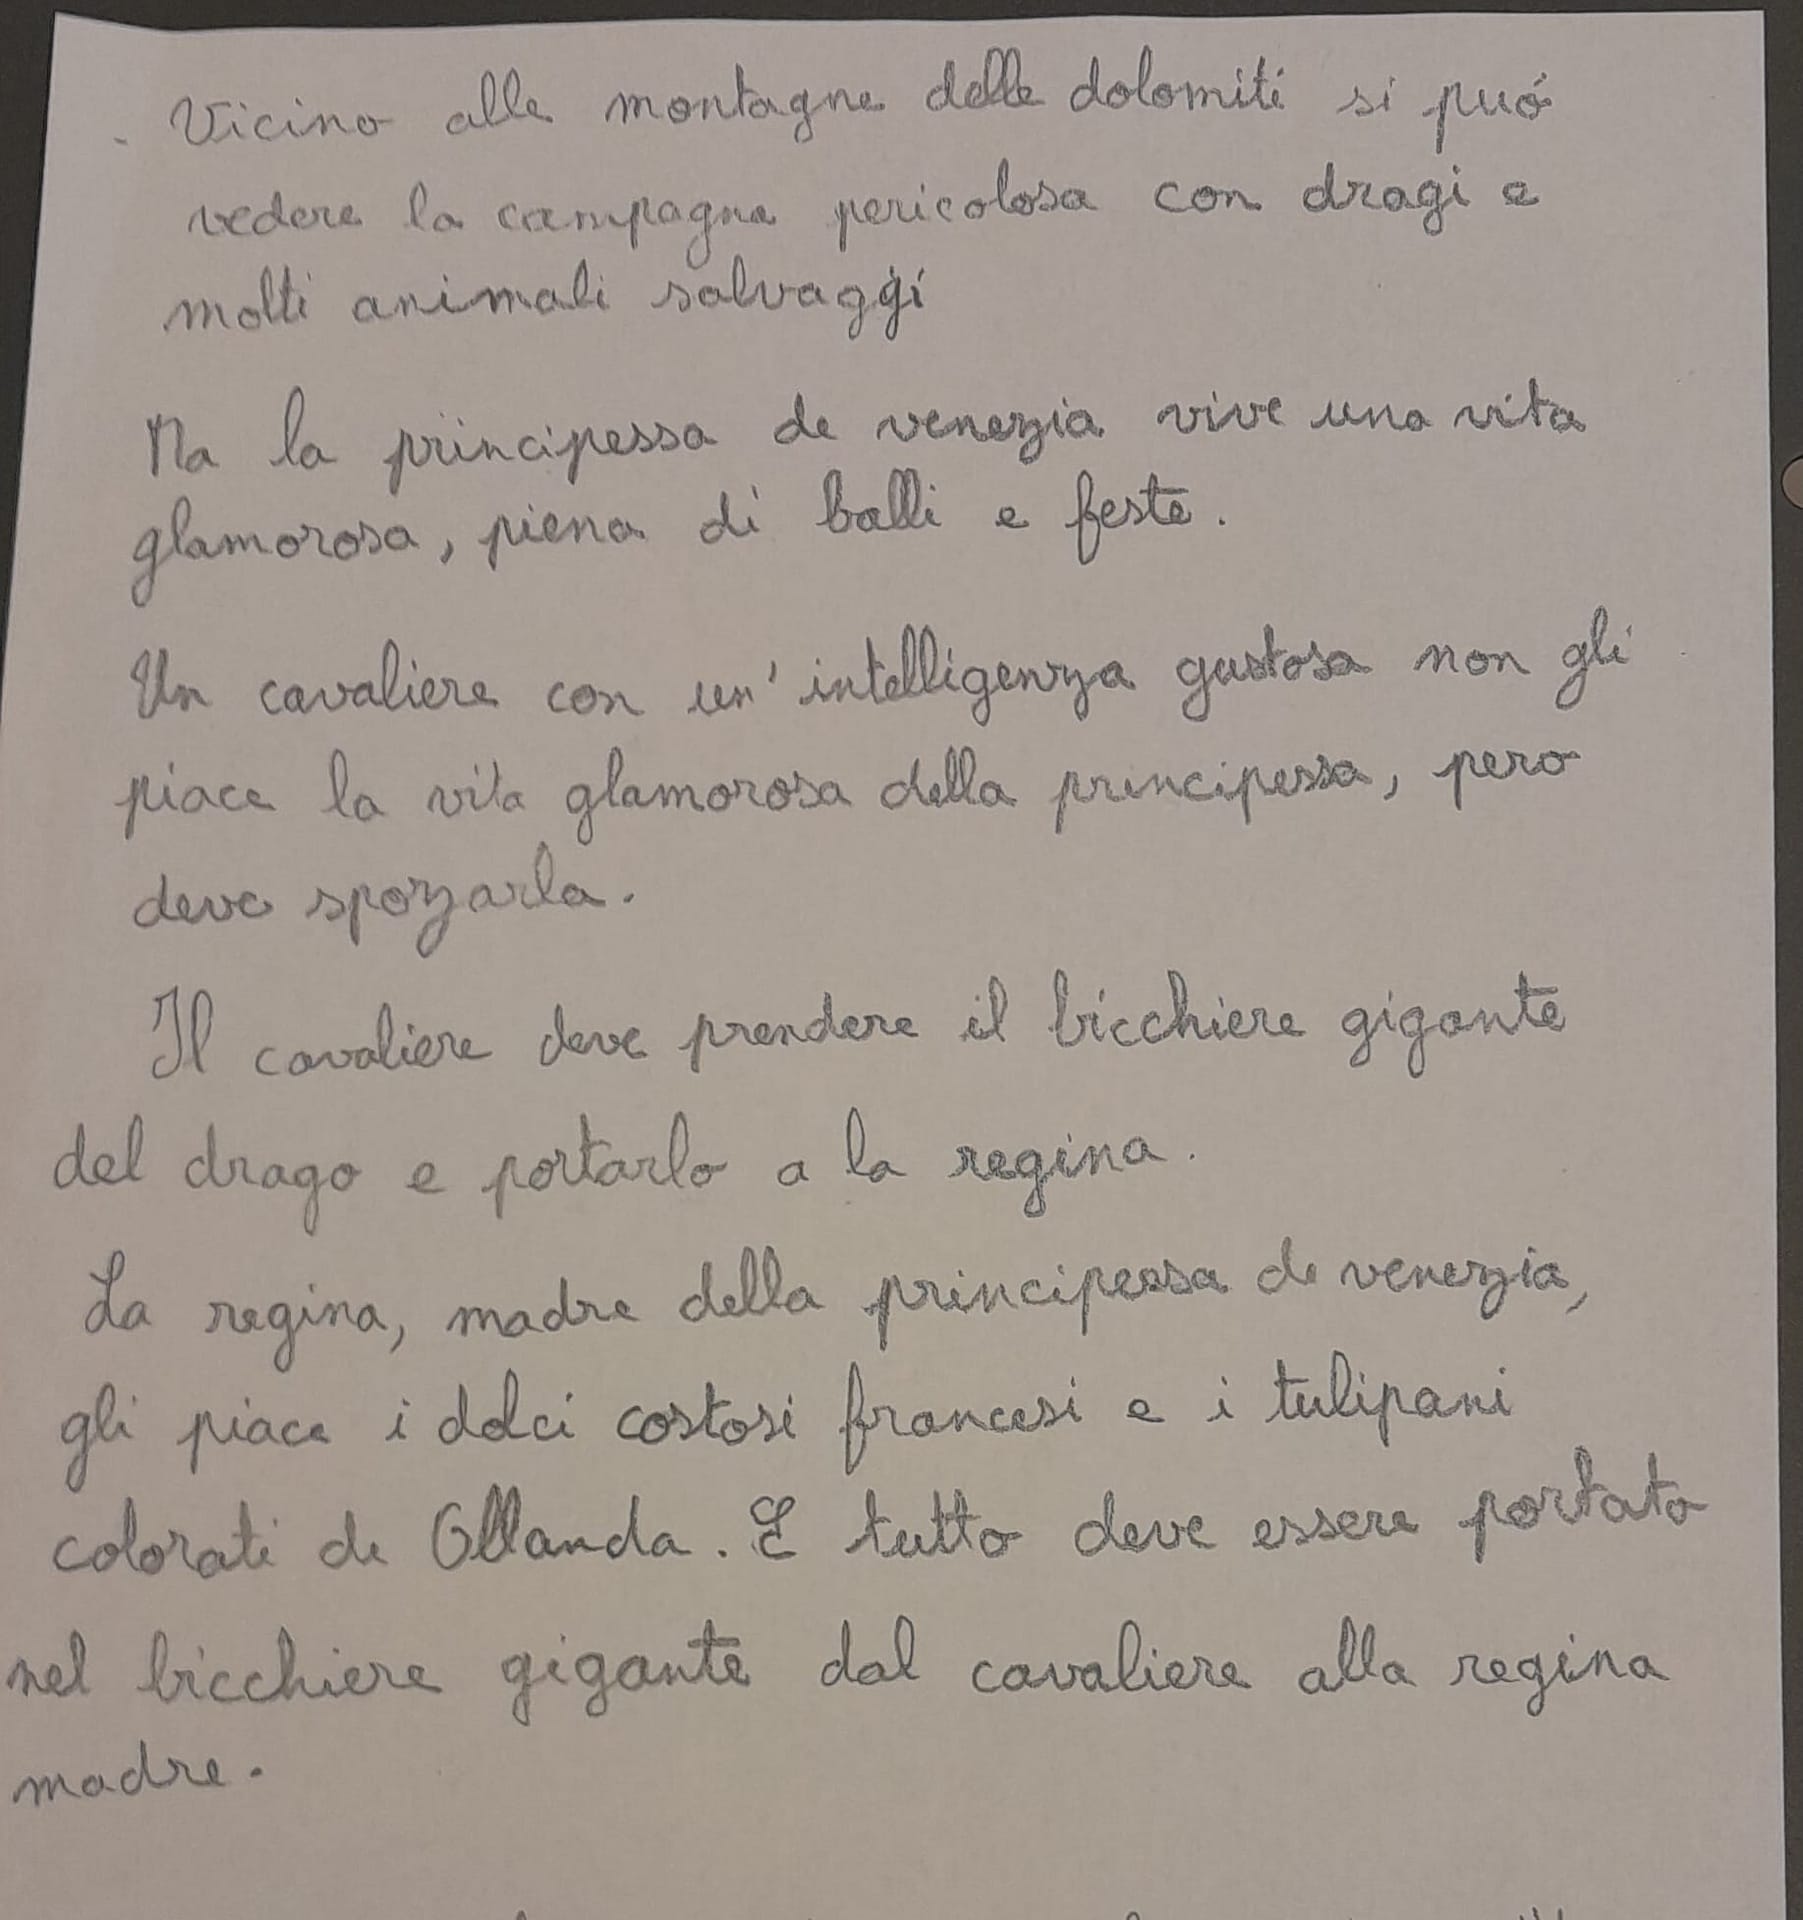 Vicino alle montagne delle dolomiti si puó
vedere la campagna pericolosa con dragi e
molti animali salvaggi
Ma la principessa de venezia vive una vita
glamorosa, piena di balli e feste.
Un cavaliere con un' intelligenza gustosa non gli
piace la vita glamorosa della principessa, pero
deve spozarla.
Il cavaliere deve prendere il bicchiere gigante
del drago e portarlo a la regina.
La regina, madre della principessa de venezia,
gli piace i dolci costosi francesi e i tulipani
colorati de Ollanda. E tutto deve essere portato
nel bicchiere gigante dal cavaliere alla regina
madre.